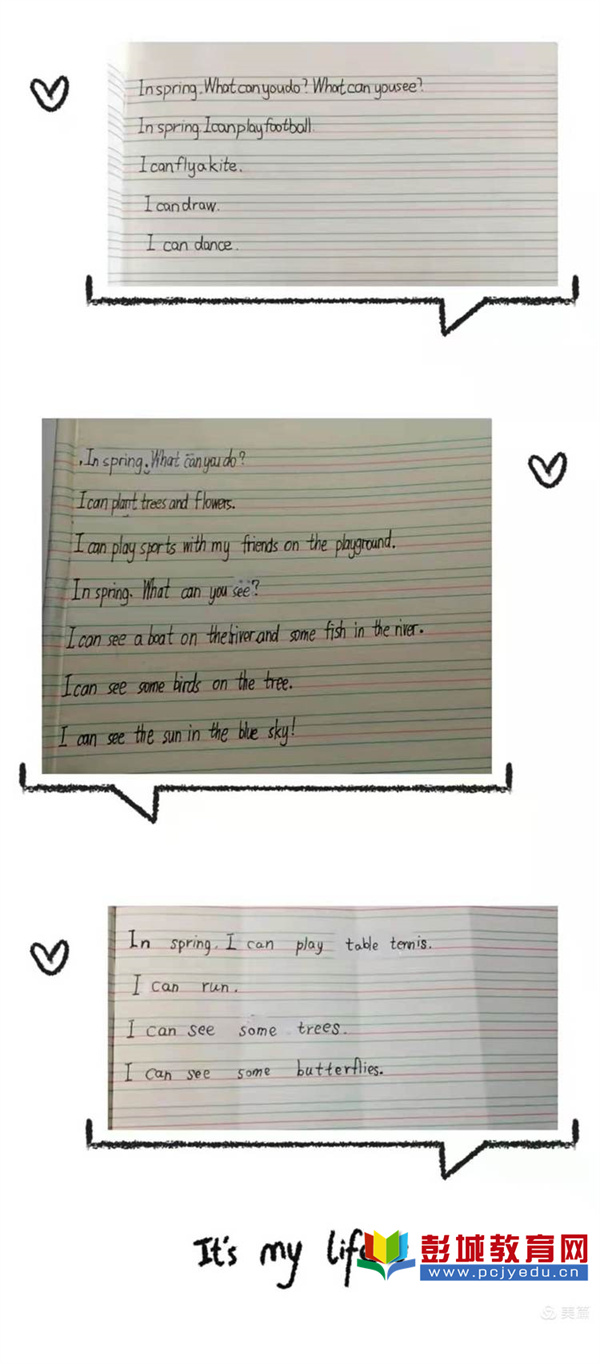 In spring. What can you do? What can you see?
In spring. I can play football.
I can fly a kite.
I can draw.
I can dance.
In spring. What can you do?
I can plant trees and flowers.
I can play sports with my friends on the playground.
In spring. What can you see?
I can see a boat on the river and some fish in the river.
I can see some birds on the tree.
I can see the sun in the blue sky!
In spring. I can play table tennis.
I can run.
I can see some trees.
I can see some butterflies.
It's my life
彭城教育网
www.pcjyedu.cn
美篇